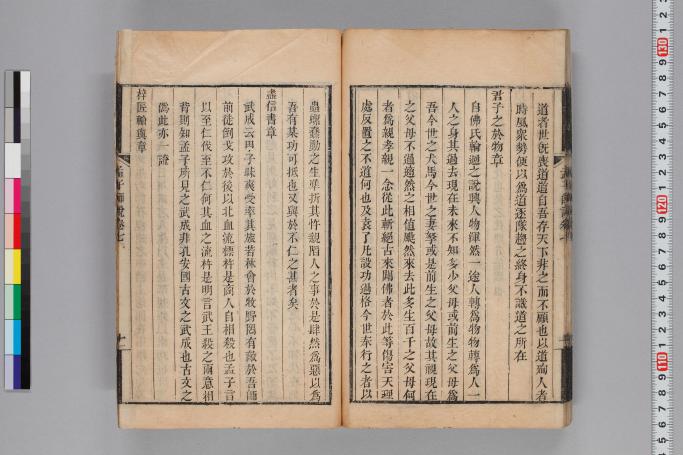 道者世既喪道道自吾存天下非之而不顧也以道殉人者
時風衆勢便以爲道逐隊趨之終身不識道之所在
君子之於物章
自佛氏輪迴之說興人物渾然一途人轉爲物物轉爲人一
人之身其過去現在未來不知多少父母或前生之父母爲
吾今世之犬馬今世之妻孥或是前生之父母故其視現在
之父母不過適然之相値飃然來去此多生百千之父母何
者爲親孝親一念從此斬絕古來闢佛者於此等傷害天理
處反置之不道何也及袁了凡設功過格今世奉行之者以
蟲螘蠢動之生準折其忤親陷人之事於是肆然爲惡以爲
吾有某功可抵也又與於不仁之甚者矣
盡信書章
武成云甲子昧爽受率其旅若林會於牧野罔有敵於吾師
前徒倒戈攻於後以北血流標杵是商人自相殺也孟子言
以至仁伐至不仁何其血之流杵是明言武王殺之兩意相
背則知孟子所見之武成非孔安國古文之武成也古文之
僞此亦一證
梓匠輪輿章
孟子師說卷七
130
120
110